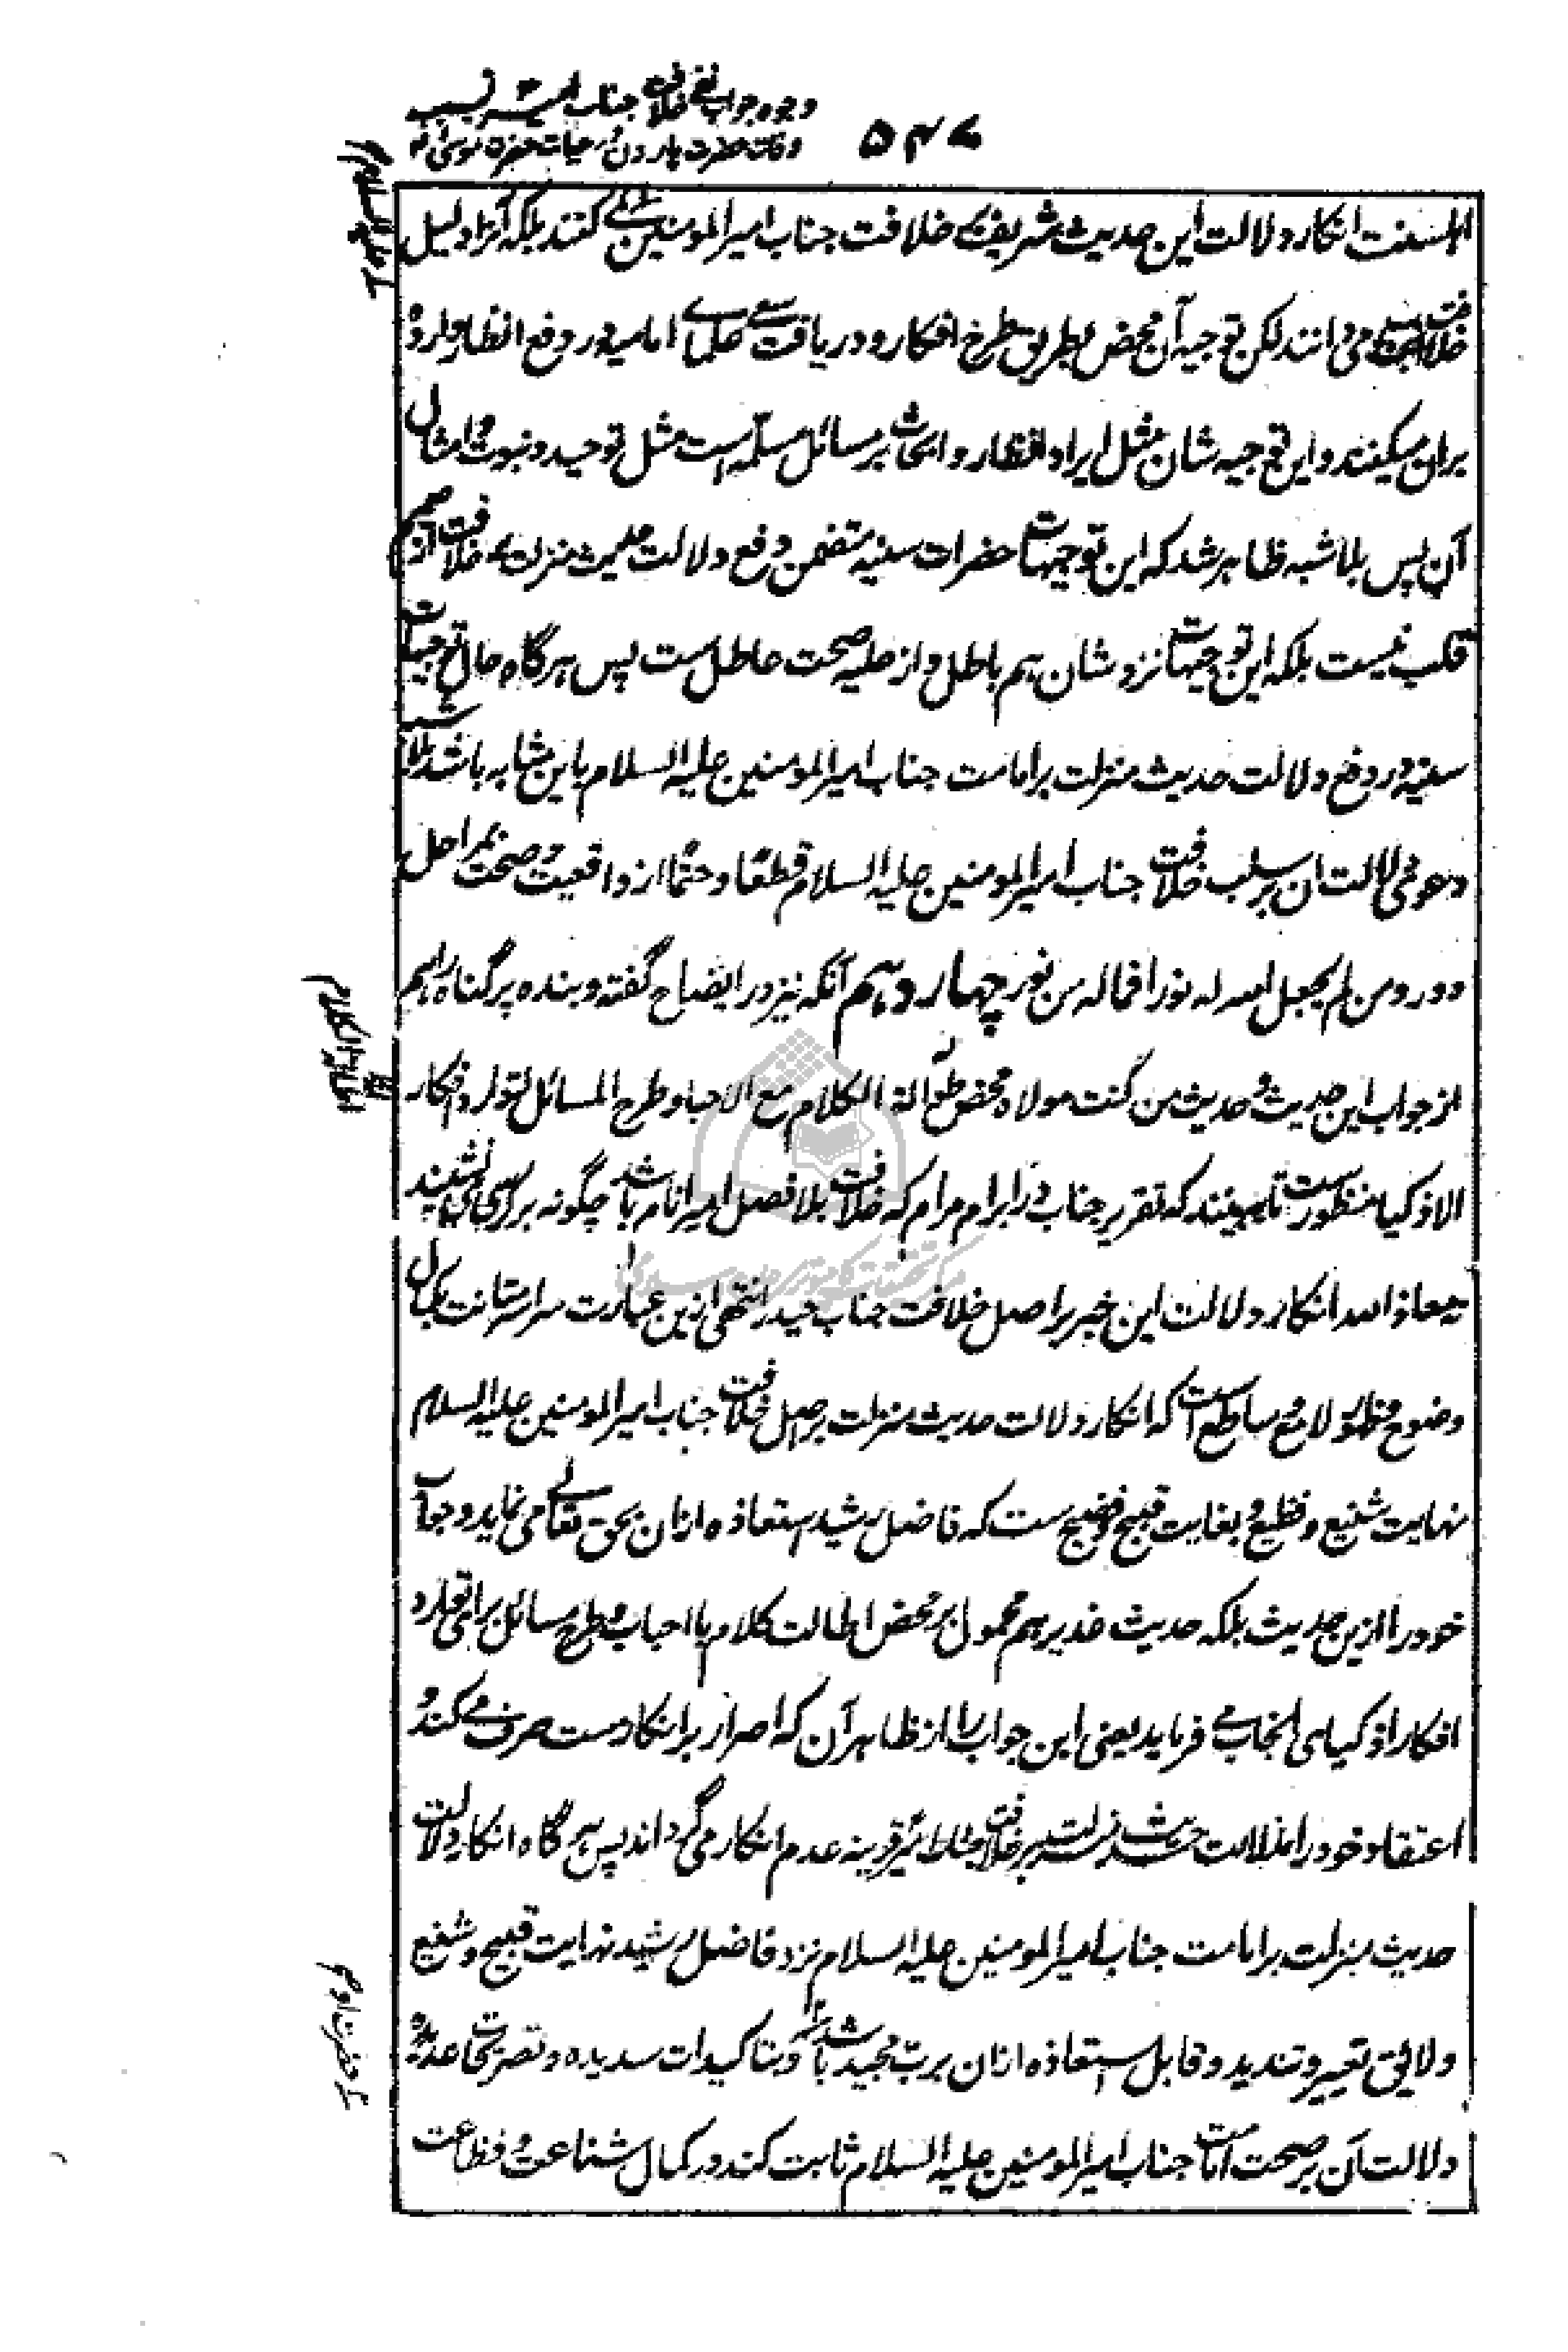 وجوه جواب نفی خلافت جناب امیر بسبب
وفات حضرت هارون در حیات حضرت موسی
۵۴۷
اہلسنت انکار دلالت این حدیث شریف بر خلافت جناب امیرالمومنین نمی کنند بلکه آنرا دلیل
خلافت می دانند لکن توجیه آن محض بطریق طرح افکار و دریافت سعی علمای امامیه در دفع انظار وارده
بران میکنند و این توجیه شان مثل ایراد انظار و ابحاث بر مسائل مسلمه است مثل توحید و نبوت و امثال
آن پس بلا شبه ظاهر شد که این توجیهات حضرات سنیه متضمن دفع دلالت حدیث منزلت بر خلافت از صمیم
قلب نیست بلکه این توجیهات نزد شان هم باطل و از حلیه صحت عاطل ست پس هرگاه حال توجیهات
سنیه در دفع دلالت حدیث منزلت بر امامت جناب امیرالمومنین علیه السلام باین مثابه باشد بلا شبه
دعوی دلالت ان بر سلب خلافت جناب امیرالمومنین علیه السلام قطعًا و حتمًا از واقعیت و صحت بمراحل
دور و من لم یجعل الله له نورا فما له من نور چہاردہم آنکه نیز در ایضاح گفته و بنده پرگناه را هم
از جواب این حدیث و حدیث من کنت مولاه محض اطالة الکلام مع الاحباء و طرح المسائل لتوارد افکار
الاذکیا منظور ست تا ببینند که تقریر جناب در ابرام مرام که خلافت بلا فصل امیر انام باشد چگونه بر کرسی می نشیند
نه معاذ الله انکار دلالت این خبر بر اصل خلافت جناب حیدر انتهی ازین عبارت سراسر متانت بکمال
وضوح و ظهور لامع و ساطع است که انکار دلالت حدیث منزلت بر اصل خلافت جناب امیرالمومنین علیه السلام
نهایت شنیع و فظیع و بغایت قبیح و فضیح ست که فاضل رشید استعاذه ازان بحق تعالی می نماید و جواب
خود را ازین حدیث بلکه حدیث غدیر هم محمول بر محض اطالت کلام با احباب و طرح مسائل برای توارد
افکار اذکیای انجاب می فرماید یعنی این جواب را از ظاهر آن که اصرار بر انکار ست صرف می کند و
اعتقاد خود را بدلالت حدیث منزلت بر خلافت قرینه عدم انکار می گرداند پس هر گاه انکار دلالت
حدیث منزلت بر امامت جناب امیرالمومنین علیه السلام نزد فاضل رشید نهایت قبیح و شنیع
و لائق تعییر و تندید و قابل استعاذه ازان برب مجید باشد و بتاکیدات سدیده و تصریحات عدیده
دلالت آن بر صحت امامت جناب امیرالمومنین علیه السلام ثابت کند در کمال شناعت و فظاعت